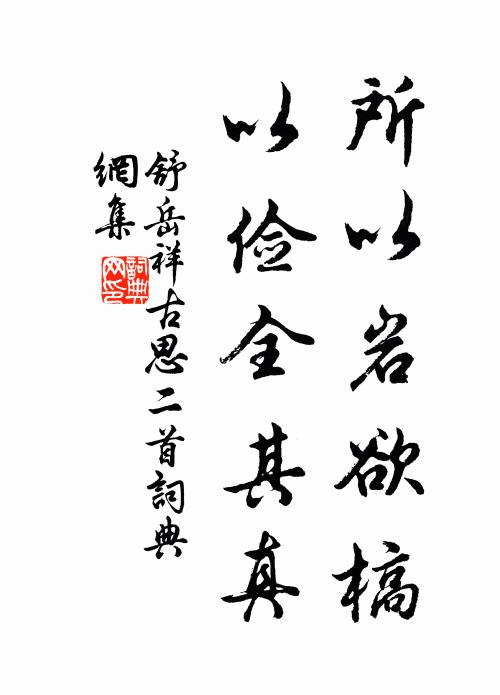 所以岩欲槁
以俭全其真
舒岳祥古思二首詞典
網集
詞典網印